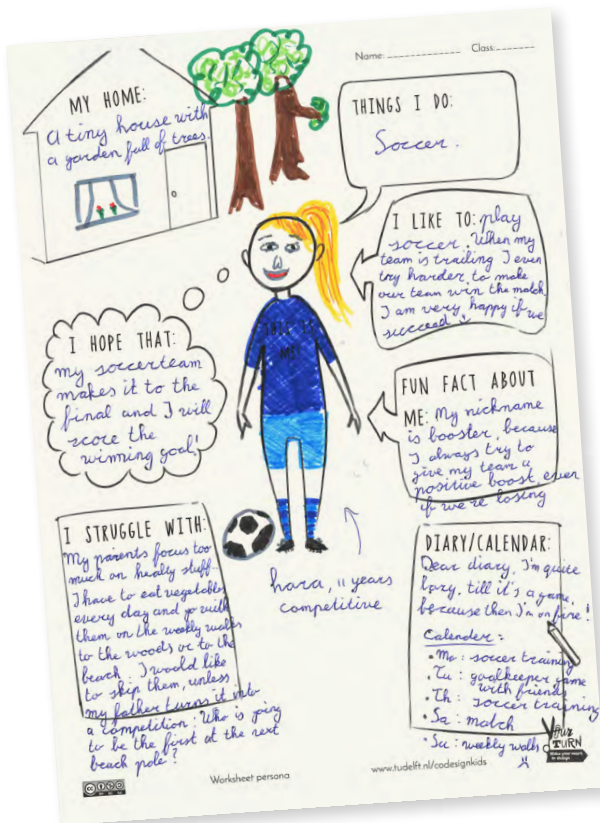 Name: _ _ _ _ _ _ _ _ _ _ _ _ Class: _ _ _ _ _ _
MY HOME:
a tiny house with
a garden full of trees.
THINGS I DO:
Soccer.
I LIKE TO: play
soccer. When my
team is trailing I even
try harder to make
our team win the match
I am very happy if we
succeed
I HOPE THAT:
my soccerteam
makes it to the
final and I will
score the
winning goal!
THIS IS
ME!
FUN FACT ABOUT
ME: My nickname
is booster, because
I always try to
give my team a
positive boost even
if we're losing
I STRUGGLE WITH:
My parents focus too
much on healty stuff..
I have to eat vegetables
every day and go with
them on the weekly walks
to the woods or to the
beach. I would like
to skip them, unless
my father turns it into
a competition: Who is going
to be the first at the next
beach pole?
11 years
competitive
DIARY/CALENDAR:
Dear diary, I'm quite
lazy, till it's a game,
because then I'm on fire!
Calender:
• Mo: soccer training
• Tu: goalkeeper game
with friends
• Th: soccer training
• Sa: match
• Su: weekly walks
YOUR
TURN
Worksheet persona
www.tudelft.nl/codesignkids